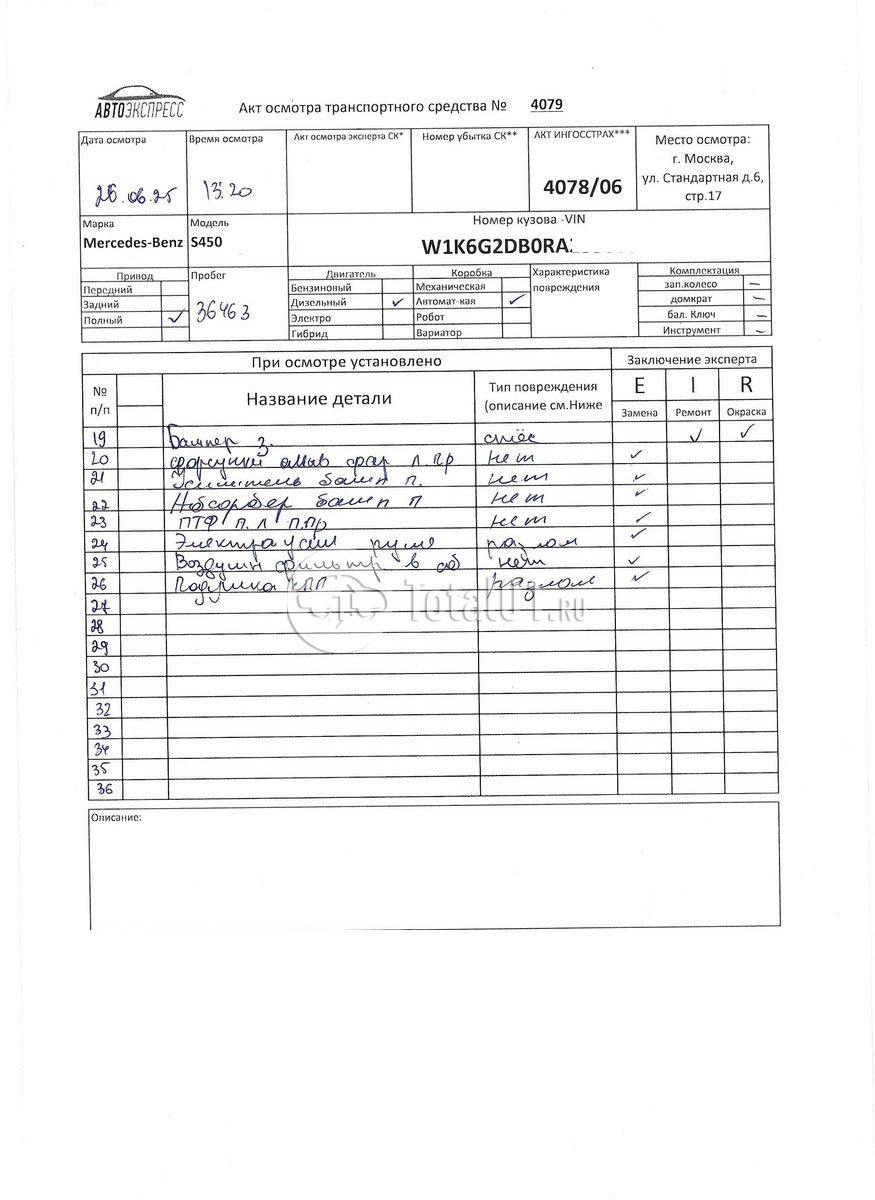 АВТОЭКСПРЕСС
Акт осмотра транспортного средства № 4079
Дата осмотра
Время осмотра
Акт осмотра эксперта СК*
Номер убытка СК**
АКТ ИНГОССТРАХ***
Место осмотра:
г. Москва,
ул. Стандартная д.6,
стр.17
26.06.25
13:20
4078/06
Марка
Модель
Номер кузова -VIN
Mercedes-Benz
S450
W1K6G2DB0RA
Привод
Пробег
Двигатель
Коробка
Характеристика
повреждения
Комплектация
Передний
Бензиновый
Механическая
зап.колесо —
Задний
Дизельный ✓
Автомат-кая ✓
домкрат —
Полный ✓
36463
Электро
Робот
бал. Ключ —
Гибрид
Вариатор
Инструмент —
При осмотре установлено
Заключение эксперта
№
п/п
Название детали
Тип повреждения
(описание см.Ниже
E I R
Замена Ремонт Окраска
19 Бампер з. ✓ ✓
20 форсунки омыв фар л.пр нет ✓
21 Усилитель бамп п. нет ✓
22 Абсорбер бамп п нет ✓
23 ПТФ п.л п.пр нет ✓
24 Электра усил руля разлом ✓
25 Воздушн фильтр в сб нет ✓
26 Подушка КПП разлом ✓
27
28
29
30
31
32
33
34
35
36
Total01.RU
Описание: